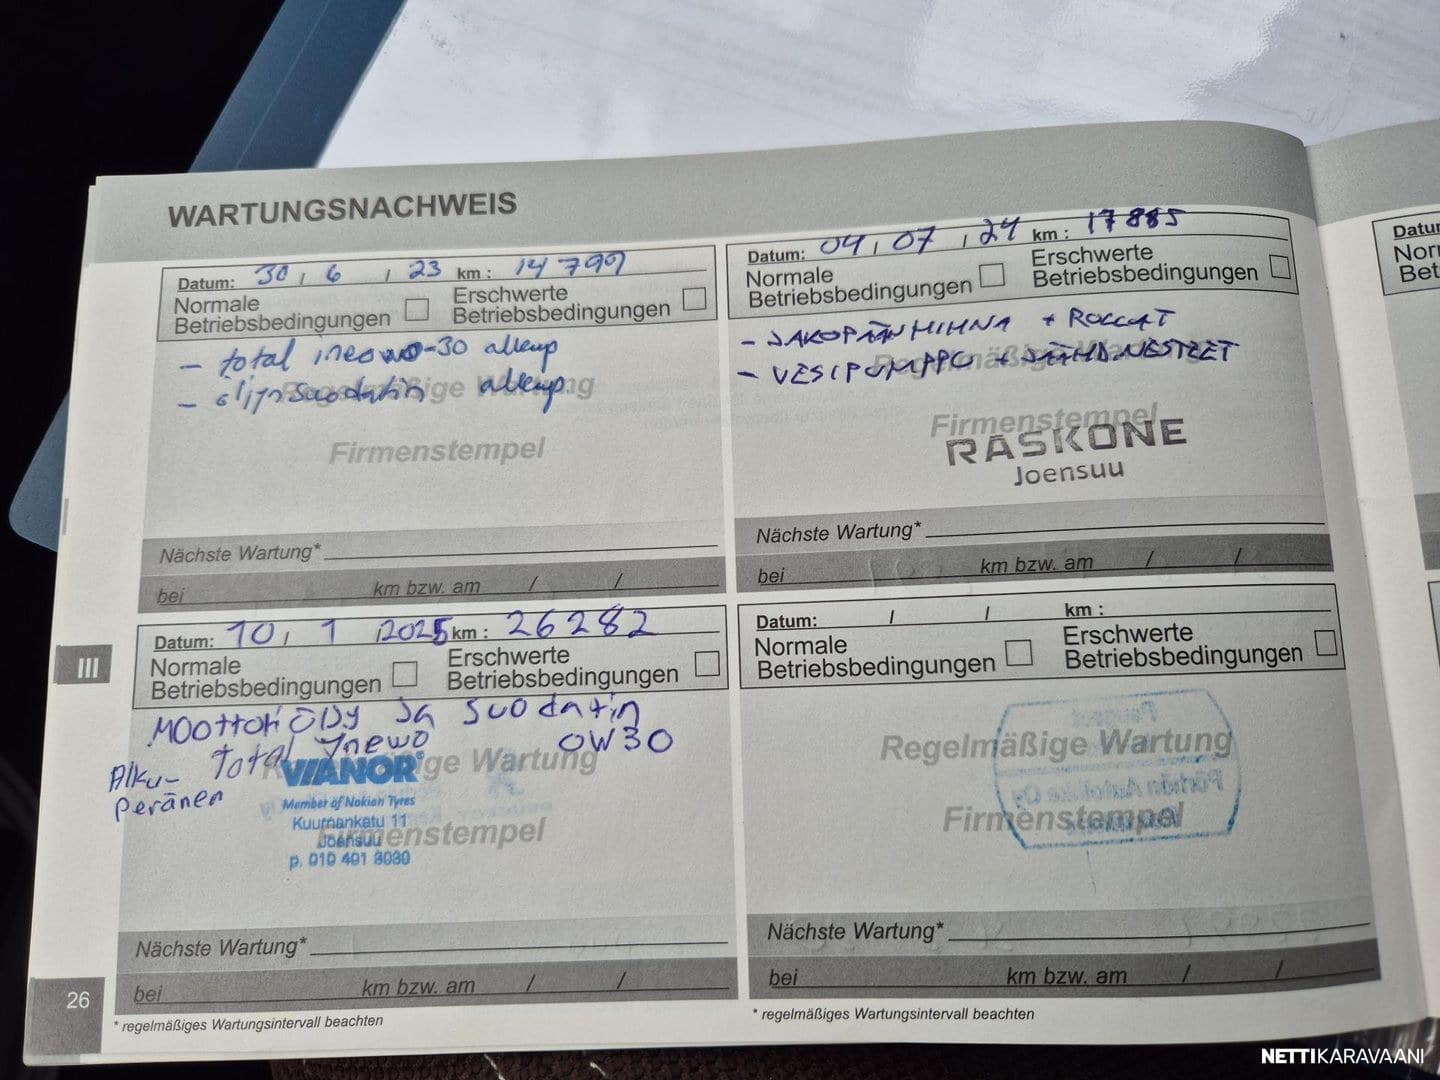 WARTUNGSNACHWEIS
Datum: 30 / 6 / 23 km : 14799
Normale Betriebsbedingungen
Erschwerte Betriebsbedingungen
- total ineo 0-30 alkup
- öljynsuodatin alkup.
Regelmäßige Wartung
Firmenstempel
Nächste Wartung*
bei km bzw. am / /
Datum: 04 / 07 / 24 km : 17885
Normale Betriebsbedingungen
Erschwerte Betriebsbedingungen
- JAKOPÄÄNHIHNA + ROLLAT
- VESIPUMPPU + JÄÄHD.NESTEET
Regelmäßige
Firmenstempel
RASKONE
Joensuu
Nächste Wartung*
bei km bzw. am / /
III
Datum: 10 / 1 / 2025 km : 26282
Normale Betriebsbedingungen
Erschwerte Betriebsbedingungen
Moottoriöljy ja Suodatin
Total Ynewo 0W30
Alku-
Peränen
VIANOR
ge Wartung
Member of Nokian Tyres
Kuurnankatu 11
Joensuu
p. 010 401 3030
Firmenstempel
Nächste Wartung*
bei km bzw. am / /
Datum: / / km :
Normale Betriebsbedingungen
Erschwerte Betriebsbedingungen
Regelmäßige Wartung
Firmenstempel
Nächste Wartung*
bei km bzw. am / /
26
* regelmäßiges Wartungsintervall beachten
* regelmäßiges Wartungsintervall beachten
Datu
Nor
Bet
NETTIKARAVAANI